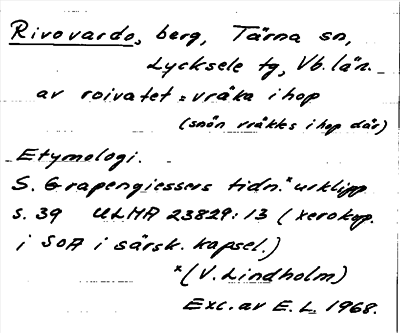 Rivovardo, berg, Tärna sn,
Lycksele tg, Vb. län.
av roivatet = vräka ihop
(snön vräktes ihop där)
Etymologi.
S. Grapengiessers tidn.* urklipp
s. 39 ULMA 23829:13 (xerokop.
i SOA i särsk. kapsel.)
*(V. Lindholm)
Exc. av E. L. 1968.